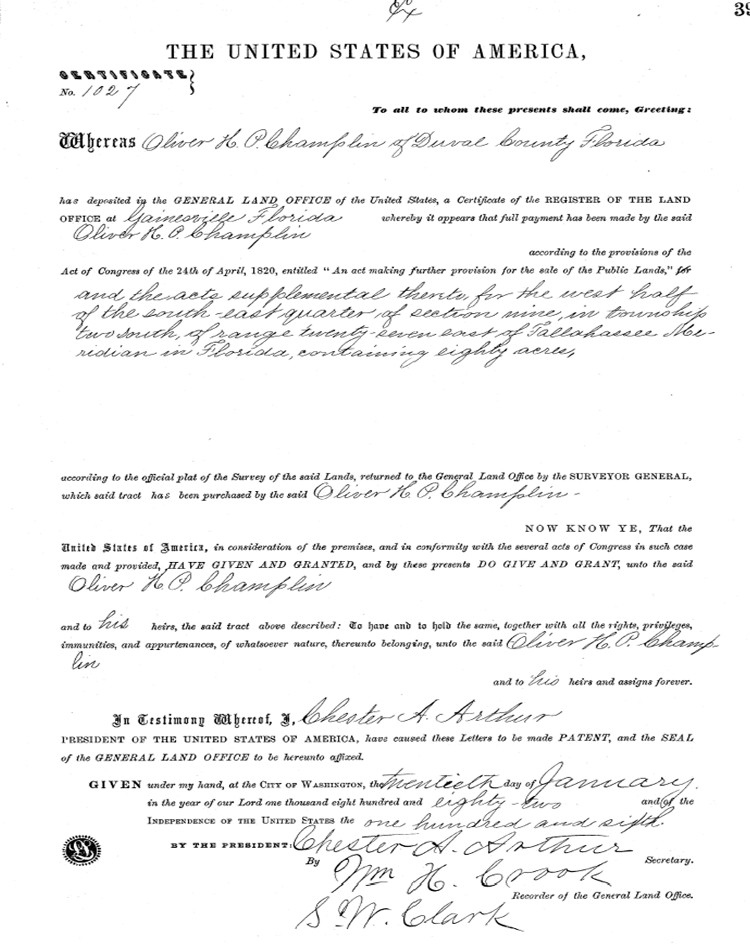 39
THE UNITED STATES OF AMERICA,
CERTIFICATE
No. 1027
To all to whom these presents shall come, Greeting:
Whereas Oliver H. P. Champlin of Duval County Florida
has deposited in the GENERAL LAND OFFICE of the United States, a Certificate of the REGISTER OF THE LAND
OFFICE at Gainesville Florida whereby it appears that full payment has been made by the said
Oliver H. P. Champlin
according to the provisions of the
Act of Congress of the 24th of April, 1820, entitled "An act making further provision for the sale of the Public Lands," for
and the acts supplemental thereto, for the west half
of the south-east quarter of section nine, in township
two south, of range twenty-seven east of Tallahassee Me-
ridian in Florida, containing eighty acres,
according to the official plat of the Survey of the said Lands, returned to the General Land Office by the SURVEYOR GENERAL,
which said tract has been purchased by the said Oliver H. P. Champlin-
NOW KNOW YE, That the
United States of America, in consideration of the premises, and in conformity with the several acts of Congress in such case
made and provided, HAVE GIVEN AND GRANTED, and by these presents DO GIVE AND GRANT, unto the said
Oliver H. P. Champlin
and to his heirs, the said tract above described: To have and to hold the same, together with all the rights, privileges,
immunities, and appurtenances, of whatsoever nature, thereunto belonging, unto the said Oliver H. P. Champ-
lin
and to his heirs and assigns forever.
In Testimony Whereof, I, Chester A. Arthur
PRESIDENT OF THE UNITED STATES OF AMERICA, have caused these Letters to be made PATENT, and the SEAL
of the GENERAL LAND OFFICE to be hereunto affixed.
GIVEN under my hand, at the CITY OF WASHINGTON, the twentieth day of January,
in the year of our Lord one thousand eight hundred and eighty-two and of the
INDEPENDENCE OF THE UNITED STATES the one hundred and sixth.
BY THE PRESIDENT: Chester A. Arthur
By Wm H. Crook Secretary.
Recorder of the General Land Office.
S. W. Clark